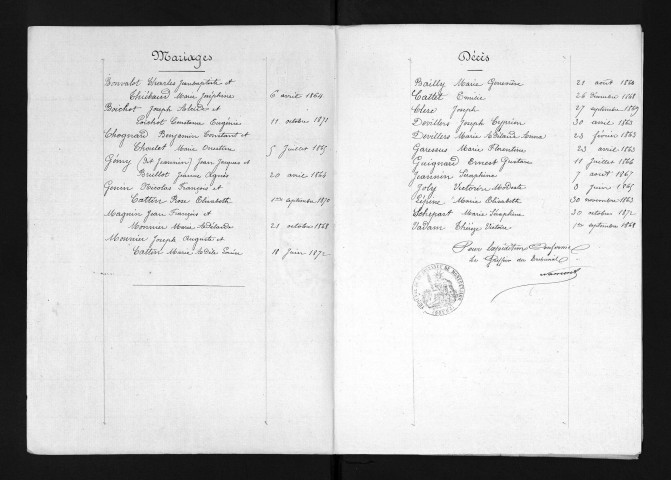 Mariages
Bonvalot Charles Jeanbaptiste et
Thiébaud Marie Joséphine 6 avril 1864
Boichot Joseph Alcide et
Boichot Constance Eugénie 11 octobre 1871
Chognard Benjamin Constant et
Choulet Marie Ernestine 5 Juillet 1865
Gémy (dit Jeannin) Jean Jacques et
Brillot Jeanne Agnès 20 avril 1864
Genin Nicolas François et
Cattin Rose Elisabeth 1er septembre 1870
Magnin Jean François et
Monnier Marie Adélaïde 21 octobre 1868
Mounier Joseph Auguste et
Cattin Marie Adèle 18 Juin 1872
Décès
Bailly Marie Geneviève 21 août 1864
Cattet Emilie 26 Décembre 1868
Clerc Joseph 27 septembre 1869
Devillers Joseph Cyprien 30 avril 1863
Devillers Marie Anna 23 février 1863
Garessus Marie Florentine 23 avril 1863
Guignard Ernest Gustave 11 Juillet 1866
Jeannin Séraphine 7 août 1867
Joly Victoire Modeste 3 Juin 1865
Lépine Marie Elisabeth 30 novembre 1863
Marie Séraphine 30 octobre 1872
Vadam Thérèse Victoire 1er septembre 1868
Pour Expédition Conforme
Le Greffier du Tribunal